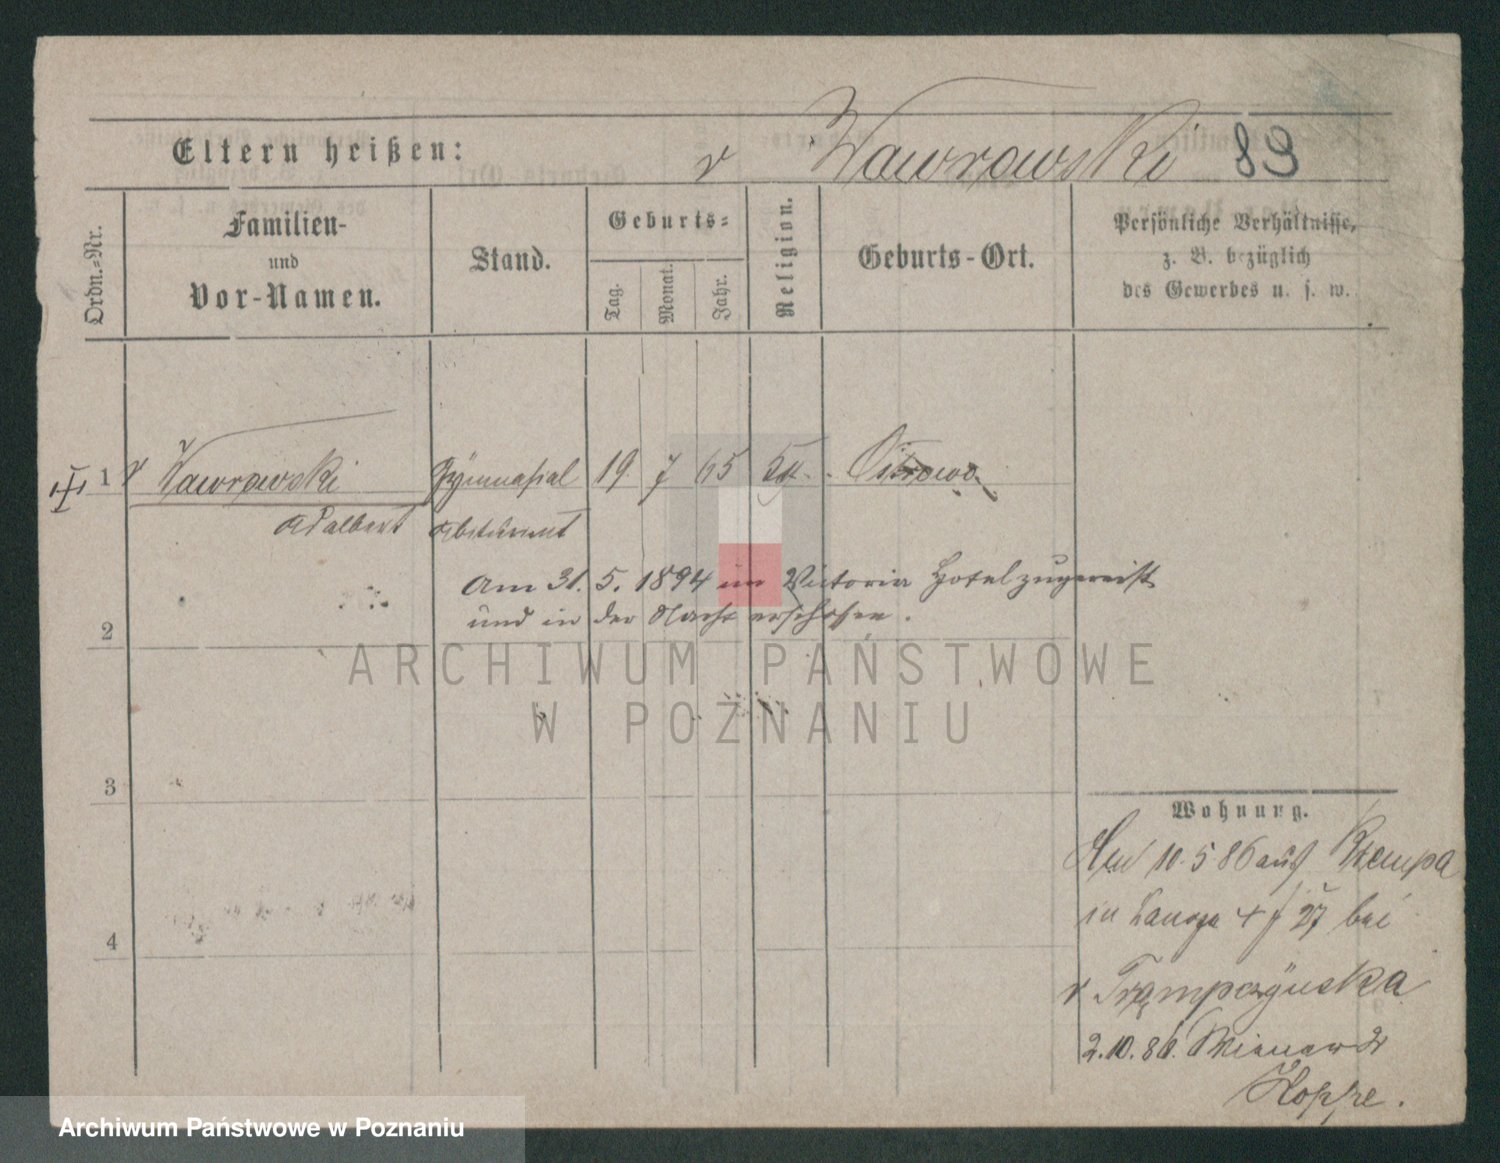 Eltern heißen:
v Wawrowski 83
Ordn.-Nr.
Familien-
und
Vor-Namen.
Stand.
Geburts-
Tag.
Monat.
Jahr.
Religion.
Geburts-Ort.
Persönliche Verhältnisse,
z. B. bezüglich
des Gewerbes u. s. w.
1 v Wawrowski Gymnasial 19 7 65 Ostrowo
Adalbert Abiturient
Am 31. 5. 1894 im Victoria Hotel zugereist
und in der Nacht erschossen.
2
3
4
Wohnung.
10. 5 86 aus Kempa
in Lange 4 / 27 bei
v Trąmpczynska
2. 10. 86. Wiener 2
Hoppe.
ARCHIWUM PAŃSTWOWE
W POZNANIU
Archiwum Państwowe w Poznaniu